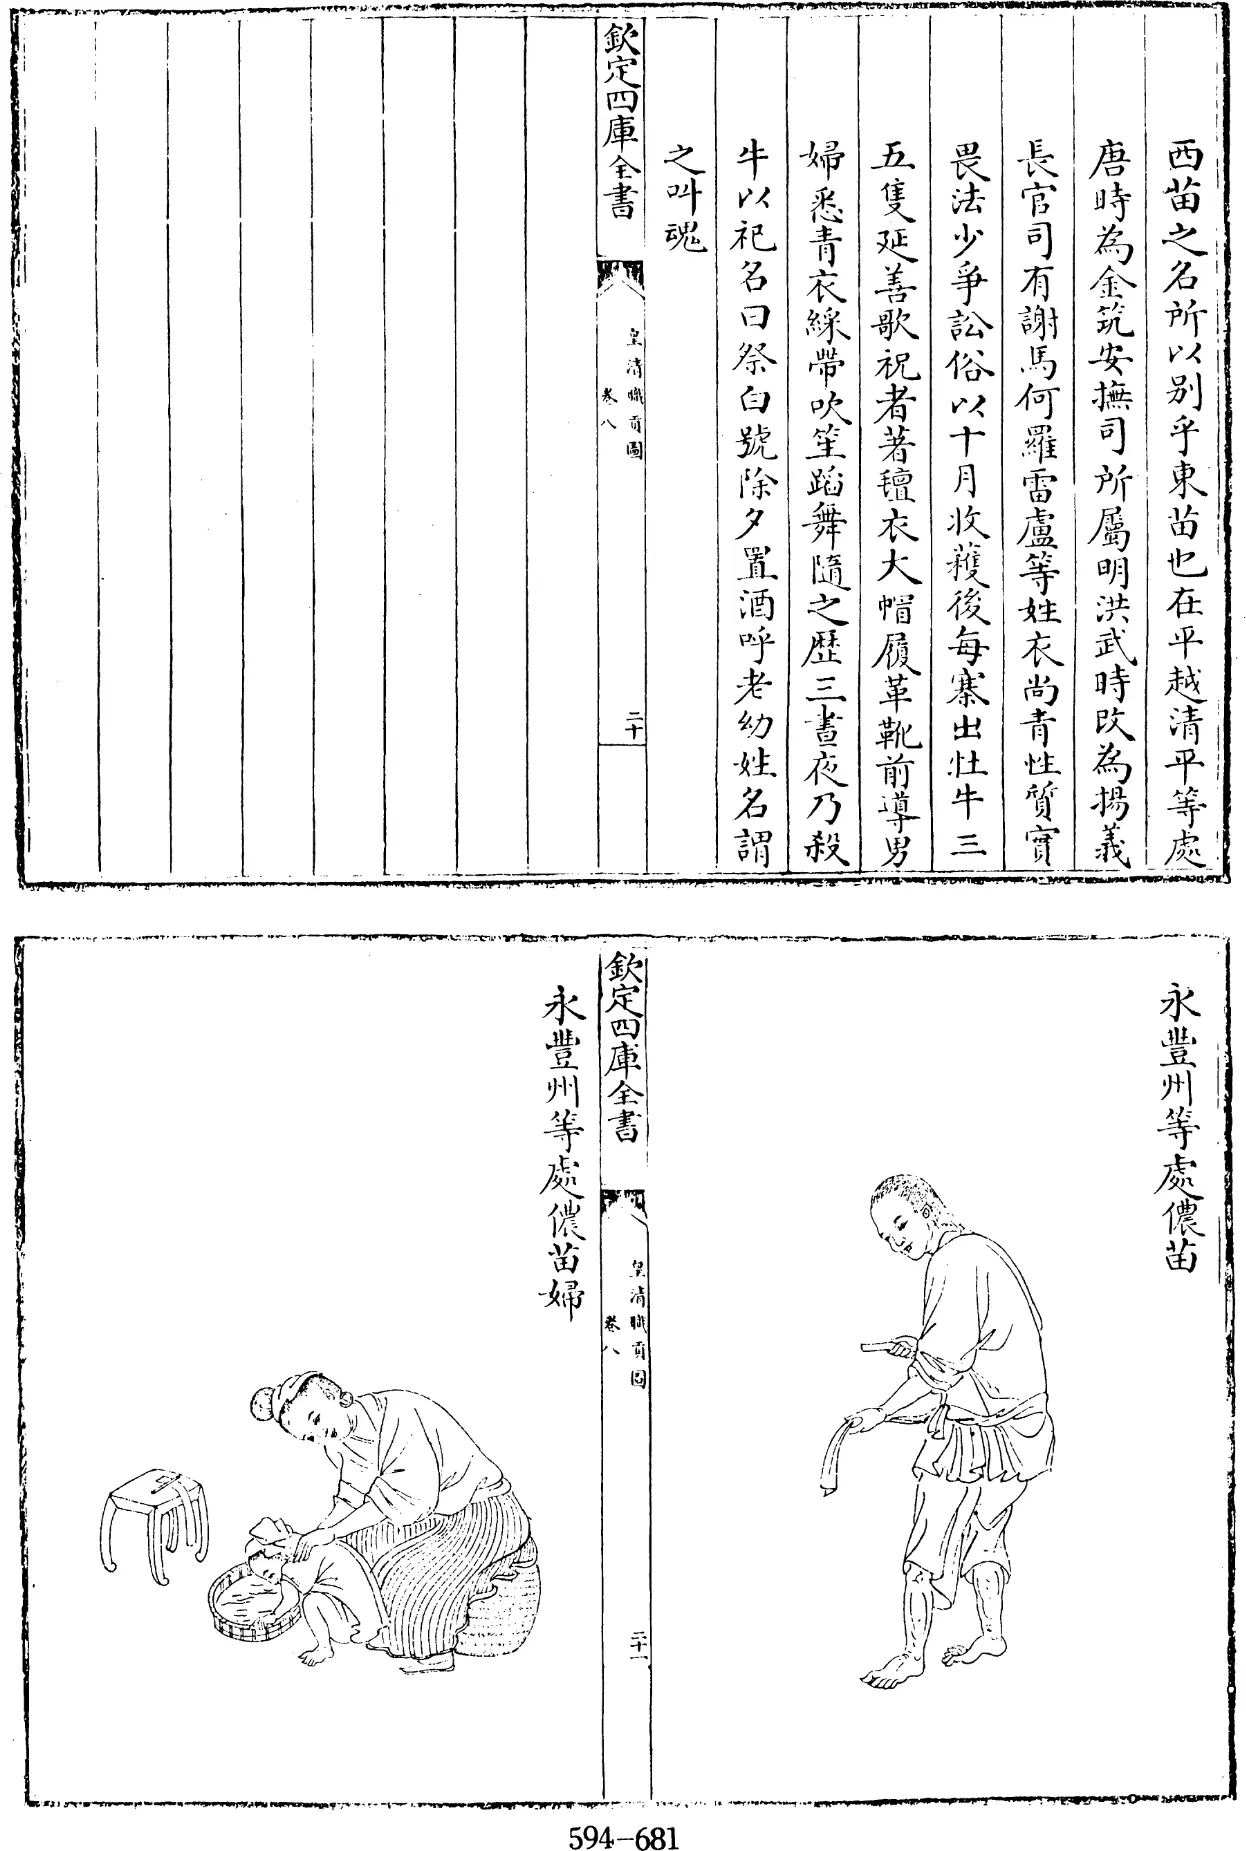 西苗之名所以别乎東苗也在平越清平等處
唐時為金筑安撫司所屬明洪武時改為揚義
長官司有謝馬何羅雷盧等姓衣尚青性質實
畏法少爭訟俗以十月收穫後每寨出牡牛三
五隻延善歌祝者著氊衣大帽履革靴前導男
婦悉青衣綵帶吹笙蹈舞隨之歴三晝夜乃殺
牛以祀名曰祭白號除夕置酒呼老幼姓名謂
之叫魂
欽定四庫全書
皇清職貢圖
卷八
二十
永豐州等處儂苗
欽定四庫全書
皇清職貢圖
卷八
二十一
永豐州等處儂苗婦
594-681